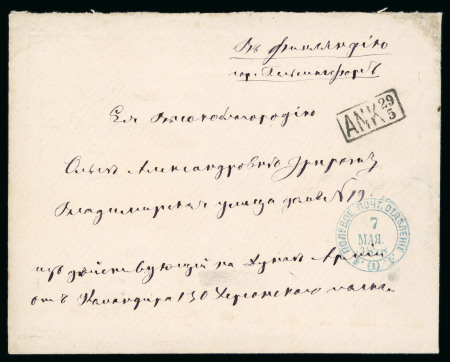 Въ Финляндію
гор. Гельсингфорсъ
ANK 29/5
Ея Высокоблагородію
Ольгѣ Александровнѣ
Владимирская улица домъ №19.
ПОЛЕВОЕ ПОЧТ. ОТДѢЛЕНІЕ
7
МАЯ
(1)
изъ дѣйствующей на Дунаѣ Арміи
отъ Командира 130 Херсонскаго полка.